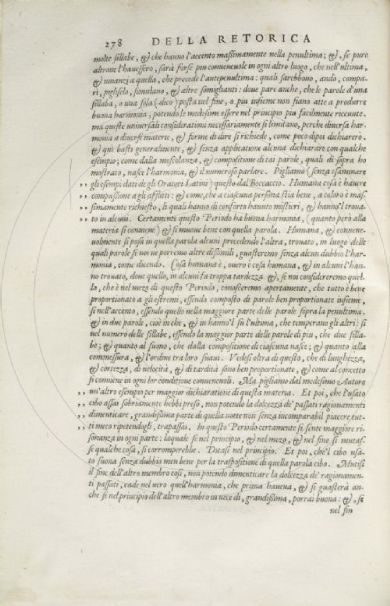 278 DELLA RETORICA
molte sillabe, & che hanno l'accento massimamente nella penultima; &, se pure
altroue l'hauessero, sarà forse piu conueneuole in ogni altro luogo, che nell'ultima,
& innanzi a quella, che precede l'antepenultima: quali sarebbono, ando, compa-
ri, pigliselo, simulano, & altre simiglianti: doue pare anche, che le parole d'una
sillaba, o una sola
buona harmonia, potendole medesime essere nel principio piu facilmente riceuute.
ma queste uniuersali considerationi necessariamente si limitano, perche diuersa har-
monia a diuerse materie, & forme di dire si richiede, come poco dipoi dichiarerò.
& qui basti generalmente, & senza applicatione alcuna dichiarare con qualche
essempio; come dalla mescolanza, & compositione di tai parole, quali di sopra ho
mostrato, nasce l'harmonia, & il numeroso parlare. Pigliamo (senza essaminare
gli essempi dati de gli Oratori Latini) questo dal Boccaccio. Humana cosa è hauere
compassione a gli afflitti: & come, che a ciascuna persona stia bene, a coloro è mas-
simamente richiesto, li quali hanno di conforto hauuto mistieri, & hannol troua-
to in alcuni. Certamente questo Periodo ha buona harmonia, (quanto però alla
materia si conuiene) & si muoue bene con quella parola. Humana, & conuene-
uolmente si posa in quella parola alcuni precedendole l'altra, trouato, in luogo delle
quali parole se noi ne porremo altre dissimili, guasteremo senza alcun dubbio l'har-
monia, come dicendo. Cosa humana è, ouero è cosa humana, & in alcuni l'han-
no trouato, doue quello, in alcuni fa troppa tardezza. &, se noi consideraremo quel-
lo, che è nel mezo di questo Periodo, conosceremo apertamente, che tutto è bene
proportionato a gli estremi, essendo composto di parole ben proportionate insieme,
si nell'accento, essendo quello nella maggiore parte delle parole sopra la penultima,
& in due parole, cioè in che, & in hannol si su l'ultima, che temperano gli altri: si
nel numero delle sillabe, essendo la maggior parte delle parole di piu, che due silla-
be; & quanto al suono, che dalla compositione di ciascuna nasce; & quanto alla
commessura, & l'ordine tra loro suaui. Vedesi oltra di questo, che di lunghezza,
& cortezza, di uelocità, & di tardità sono ben proportionate, & come al concetto
si conuiene in ogni lor conditione conueneuoli. Ma pigliamo dal medesimo Autore
un'altro essempio per maggior dichiaratione di questa materia. Et poi, che l'usato
cibo assai sobriamente hebbi preso, non potendo la dolcezza de' passati ragionamenti
dimenticare, grandissima parte di quella notte non senza incomparabil piacere tut-
ti meco ripetendogli, trapassai. In questo Periodo certamente si sente maggiore ri-
sonanza in ogni parte: laquale se nel principio, & nel mezo, & nel fine si mutas-
se qualche cosa, si corromperebbe. Dicasi nel principio. Et poi, che'l cibo usa-
to suona senza dubbio men bene per la traspositione di quella parola cibo. Mutisi
il fine dell'altro membro così, non potendo dimenticare la dolcezza de' ragionamen-
ti passati; cade nel uero quell'harmonia, che prima haueua, & si guasterà an-
che se nel principio dell'altro membro in uece di, grandissima, porrai buona: &, se
nel fin